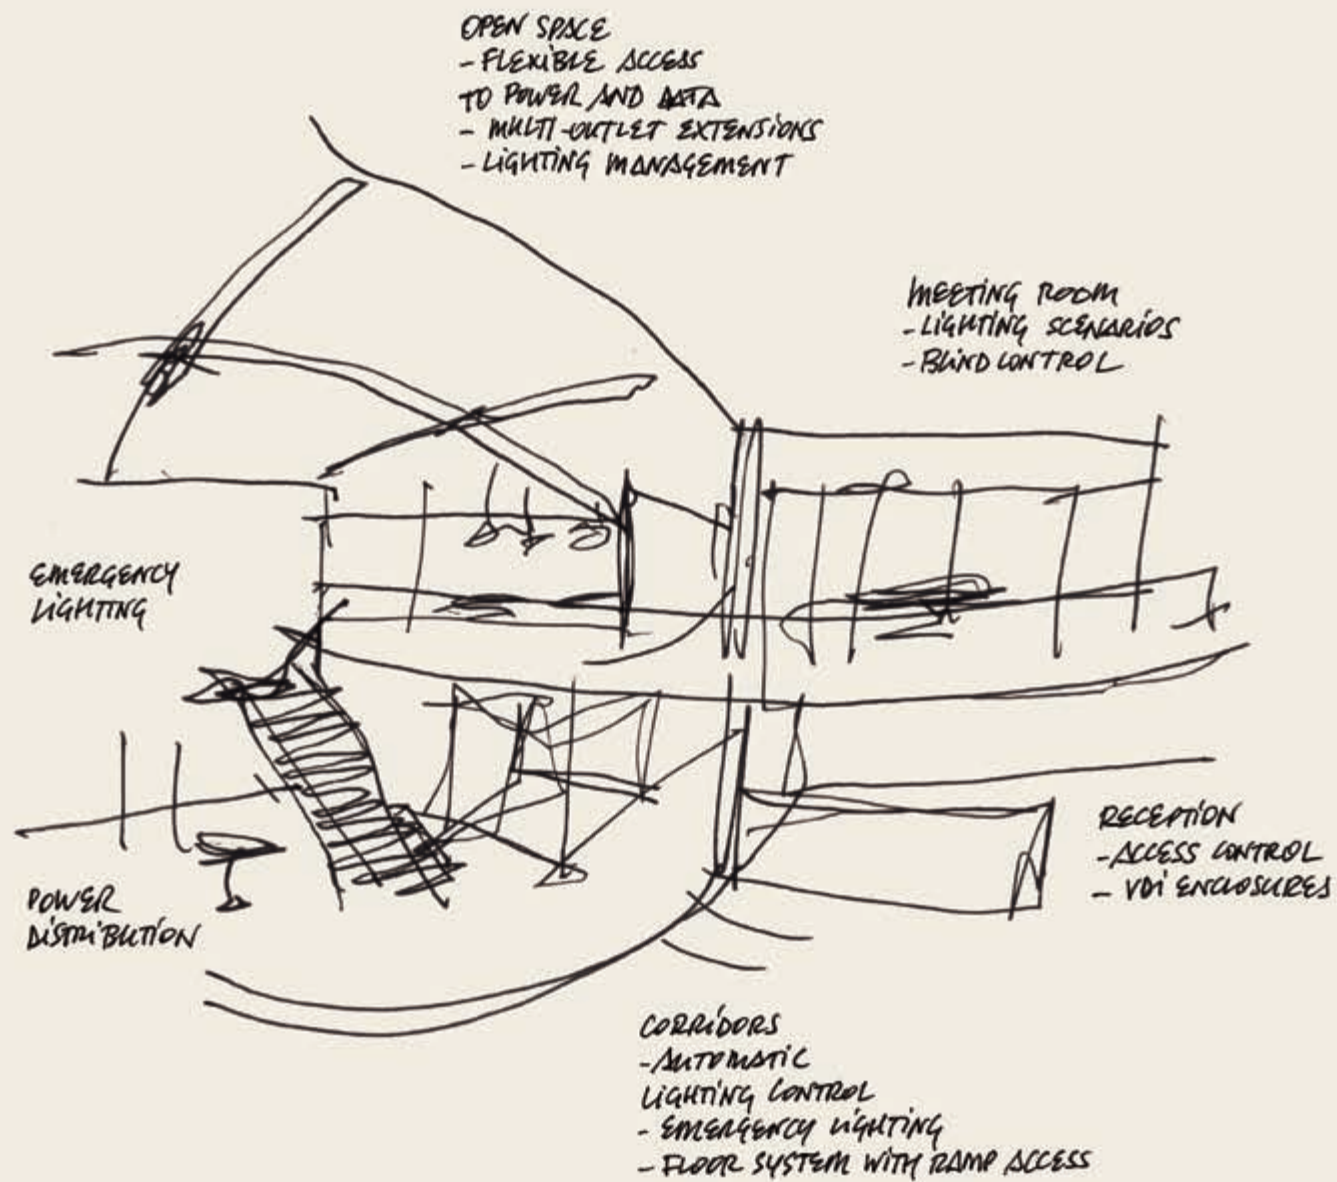 OPEN SPACE
- FLEXIBLE ACCESS
TO POWER AND DATA
- MULTI-OUTLET EXTENSIONS
- LIGHTING MANAGEMENT
MEETING ROOM
- LIGHTING SCENARIOS
- BLIND CONTROL
EMERGENCY
LIGHTING
RECEPTION
- ACCESS CONTROL
- VDI ENCLOSURES
POWER
DISTRIBUTION
CORRIDORS
- AUTOMATIC
LIGHTING CONTROL
- EMERGENCY LIGHTING
- FLOOR SYSTEM WITH RAMP ACCESS